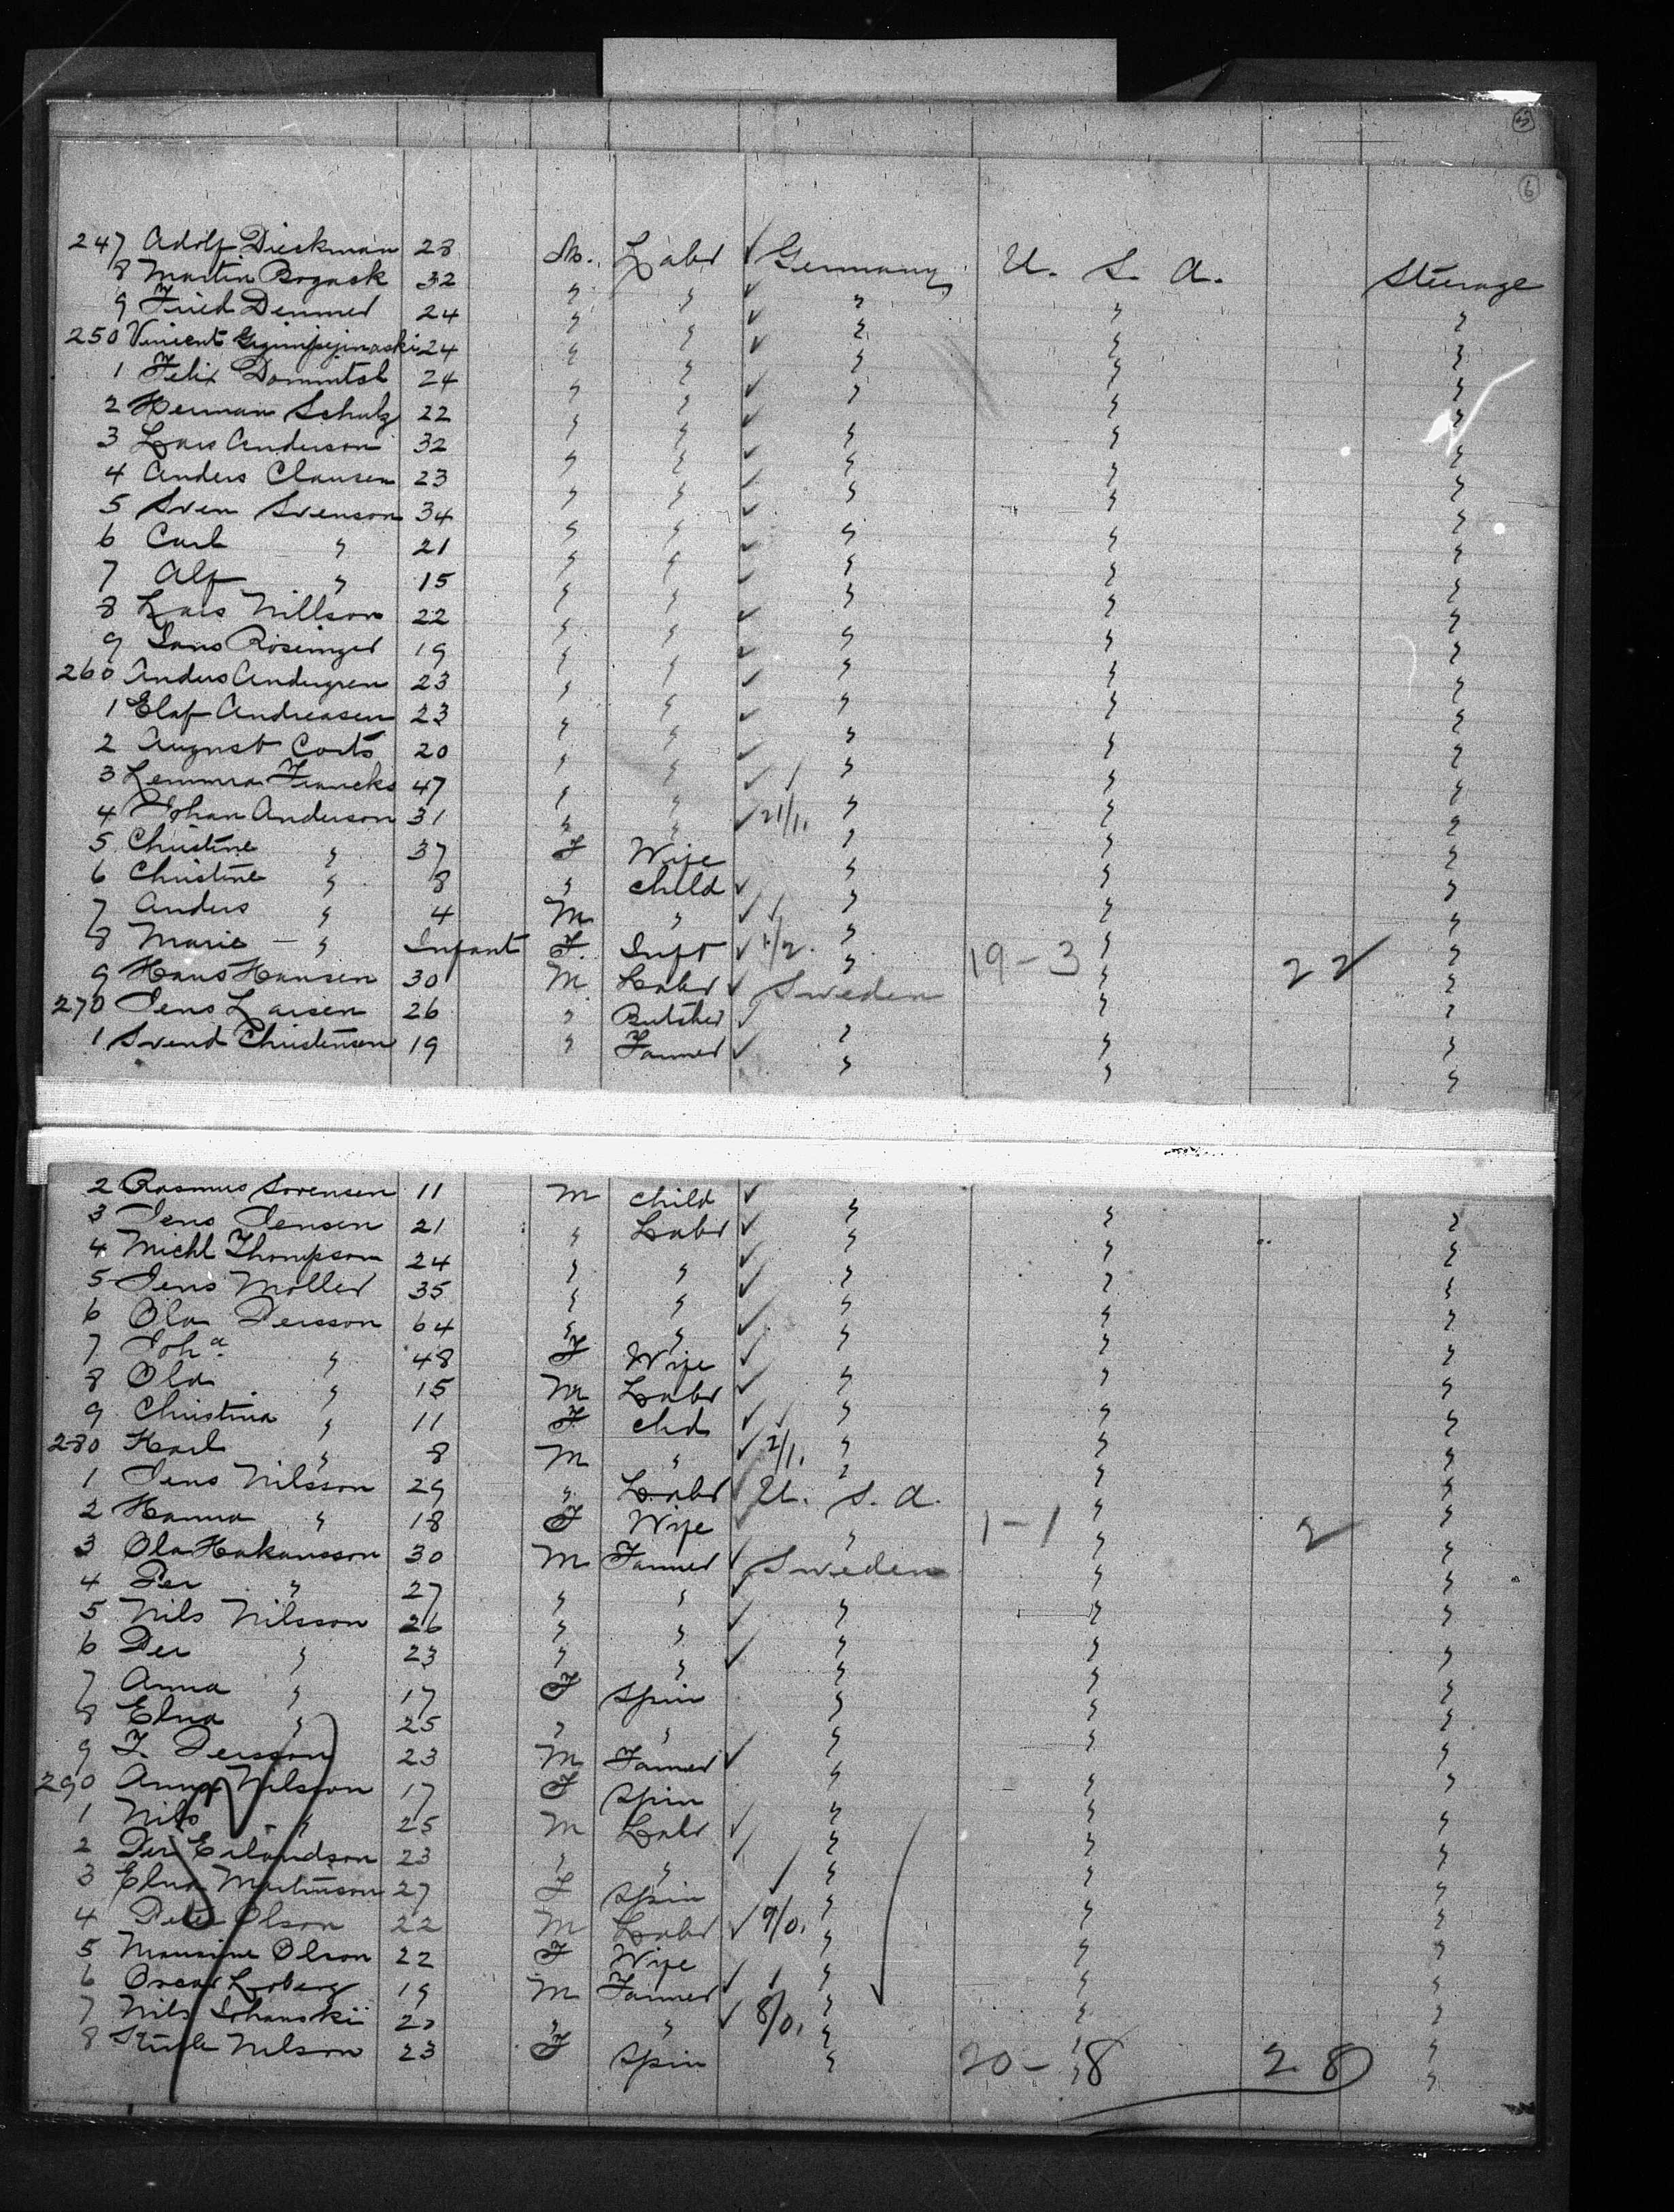 3
6
247 Adolf Dieckman 28 M. Labr ✓ Germany U. S. A. Steerage
8 Martin Bogack 32 " " ✓ " " "
9 Fried Demmer 24 " " ✓ " " "
250 Vincent 24 " " ✓ " " "
1 Felix Dommtal 24 " " ✓ " " "
2 Herman Schulz 22 " " ✓ " " "
3 Lars Anderson 32 " " ✓ " " "
4 Anders Clausen 23 " " ✓ " " "
5 Sven Svenson 34 " " ✓ " " "
6 Carl " 21 " " ✓ " " "
7 Alf " 15 " " ✓ " " "
8 Lars Nillson 22 " " ✓ " " "
9 Rosinger 19 " " ✓ " " "
260 Anders Andergren 23 " " ✓ " " "
1 Elof Andreasen 23 " " ✓ " " "
2 August Corts 20 " " ✓ " " "
3 Francks 47 " " ✓ " " "
4 Johan Anderson 31 " " ✓ 21/1. " " "
5 Christine " 37 F Wife " " "
6 Christine " 8 " child ✓ " " "
7 Anders " 4 M " ✓ " " "
8 Marie — " Infant F. Inft ✓ 1/2. " 19-3 " 22 "
9 Hans Hansen 30 M Labr ✓ Sweden " "
270 Jens Larsen 26 " Butcher ✓ " " "
1 Svend Christensen 19 " Farmer ✓ " " "
2 Rasmus Sorensen 11 M child ✓ " " "
3 Jens Jensen 21 " Labr ✓ " " "
4 Michl Thompson 24 " " ✓ " " "
5 Jens Moller 35 " " ✓ " " "
6 Ola Persson 64 " " ✓ " " "
7 Joha " 48 F Wife ✓ " " "
8 Ola " 15 M Labr ✓ " " "
9 Christina " 11 F. chd ✓ " " "
280 Karl " 8 M " ✓ 2/1. " " "
1 Jens Nilsson 29 " Labr ✓ U. S. A. " "
2 Hanna " 18 F Wife ✓ " 1-1 " 2 "
3 Ola Hakansson 30 M Farmer ✓ Sweden " "
4 Per " 27 " " ✓ " " "
5 Nils Nilsson 26 " " ✓ " " "
6 Per " 23 " " ✓ " " "
7 Anna " 17 F Spin " " "
8 Elna " 25 " " " " "
9 F. Persson 23 M Farmer ✓ " " "
290 Anna Nilsson 17 F Spin " " "
1 Nils " 25 M Labr ✓ " " "
2 Per Erlandson 23 " " ✓ " " "
3 Elna Martinson 27 F Spin " " "
4 Peter Olson 22 M Labr ✓ 9/0. " " "
5 Olson 22 F Wife " " "
6 Oscar 19 M Farmer ✓ " " "
7 Nils 20 " " ✓ 8/0. " " "
8 Nelson 23 F Spin " 20-18 " 28 "